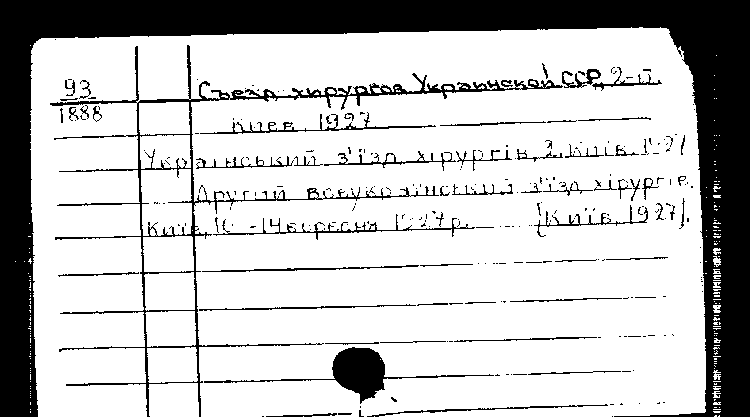 93
1888
Съезд хирургов Украинской ССР, 2-й.
Киев, 1927
Український з'їзд хірургів, 2. Київ. 1927
Другий всеукраїнський з'їзд хірургів.
Київ, 10-14 вересня 1927 р. [Київ, 1927].